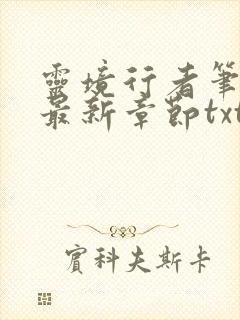 靈境行者筆
最新章節txt
賓科夫斯卡